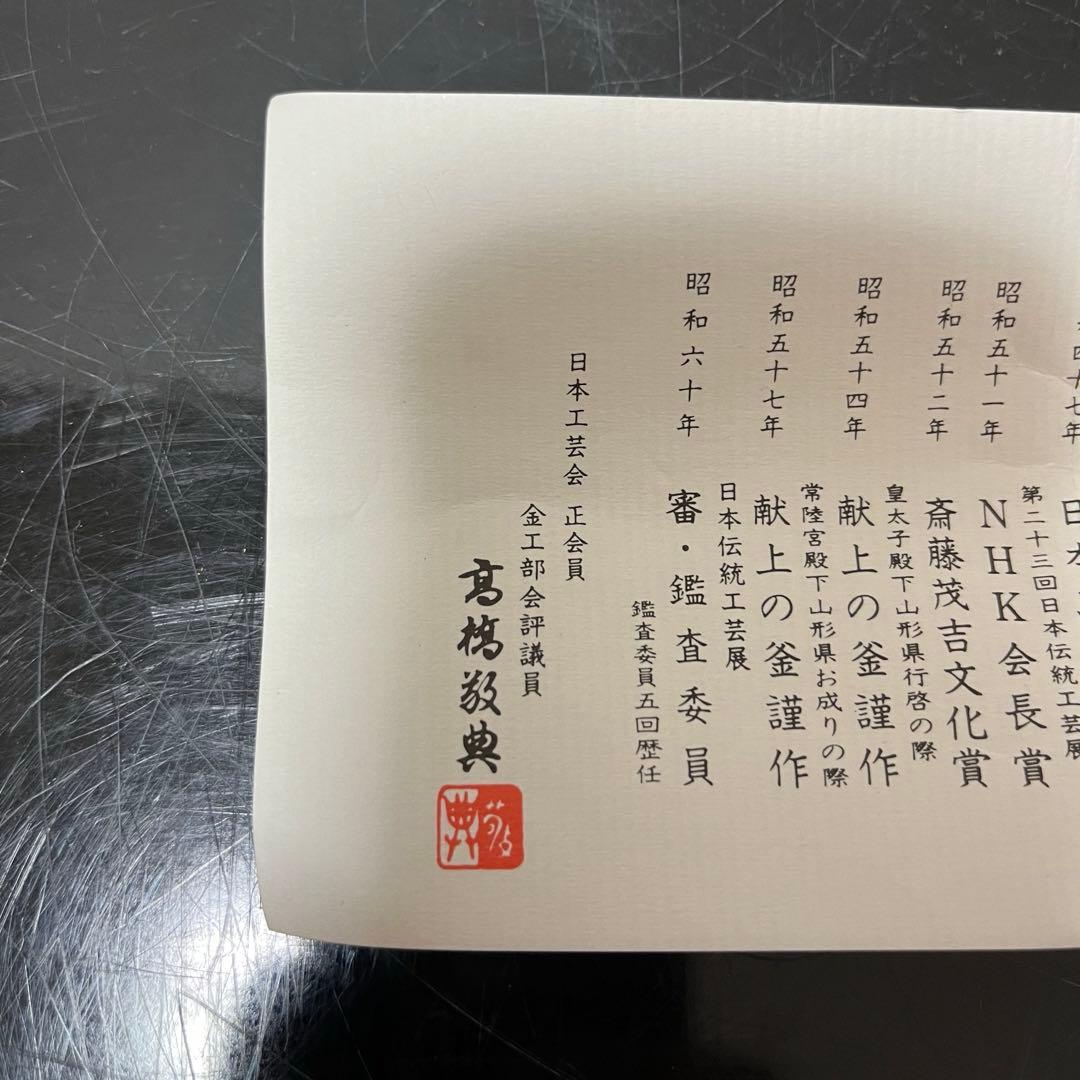 四十七年
日本
第二十三回日本伝統工芸展
昭和五十一年 NHK会長賞
昭和五十二年 斎藤茂吉文化賞
皇太子殿下山形県行啓の際
昭和五十四年 献上の釜謹作
常陸宮殿下山形県お成りの際
昭和五十七年 献上の釜謹作
日本伝統工芸展
昭和六十年 審・鑑査委員
鑑査委員五回歴任
日本工芸会 正会員
金工部会評議員
高橋敬典